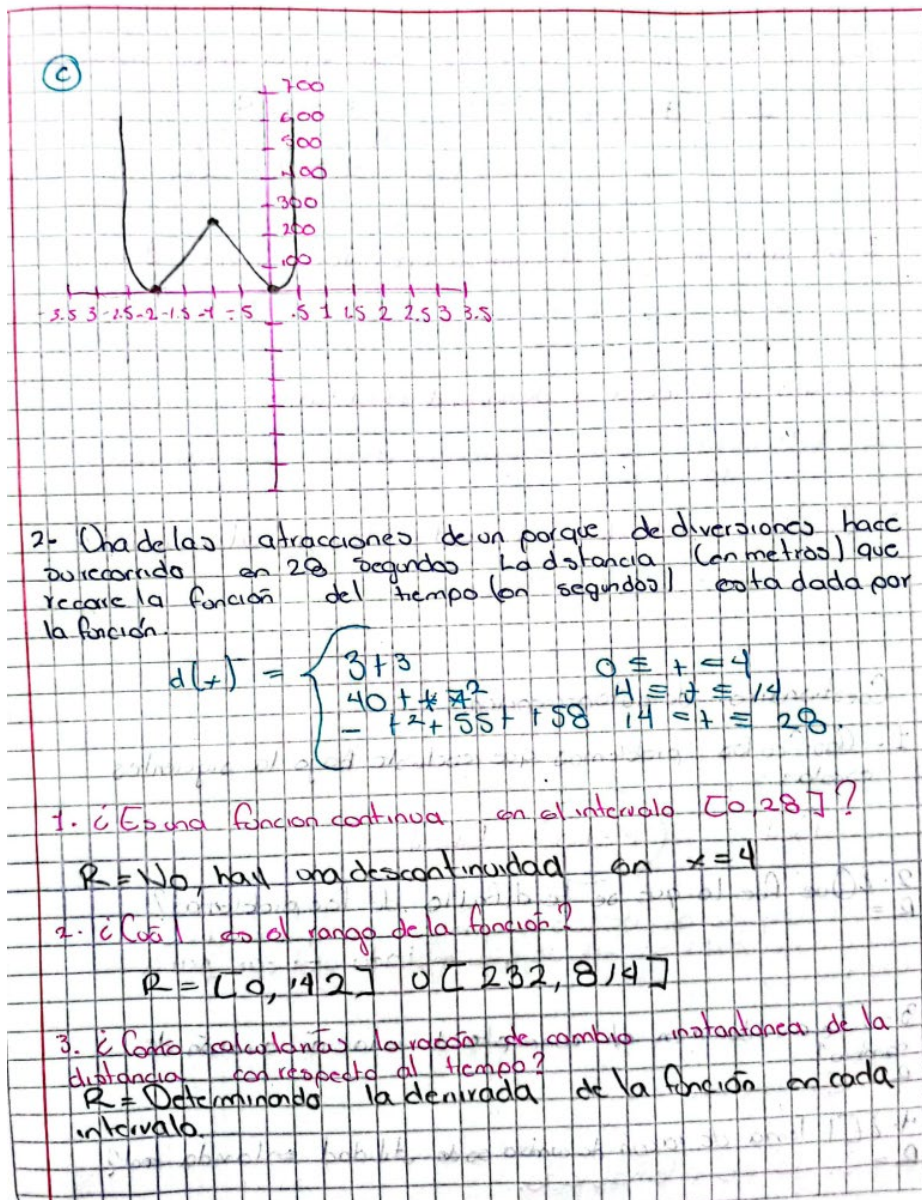 C
700
600
500
400
300
200
100
3.5 3 -2.5 -2 -1.5 -1 -.5 .5 1 1.5 2 2.5 3 3.5
2- Una de las atracciones de un parque de diversiones hace
su recorrido en 28 segundos La distancia (en metros) que
recorre la función del tiempo (en segundos) esta dada por
la función.
d(t) = 3t3 0 ≤ t ≤ 4
40 t + t2 4 ≤ t ≤ 14
- t2 + 55t + 58 14 ≤ t ≤ 28.
1. ¿Es una funcion continua en el intervalo [0,28]?
R = No, hay una descontinuidad en x=4
2. ¿Cuál es el rango de la función?
R = [0,192] U [232,814]
3. ¿Como calcularías la razón de cambio instantanea de la
distancia con respecto al tiempo?
R = Determinando la derivada de la función en cada
intervalo.